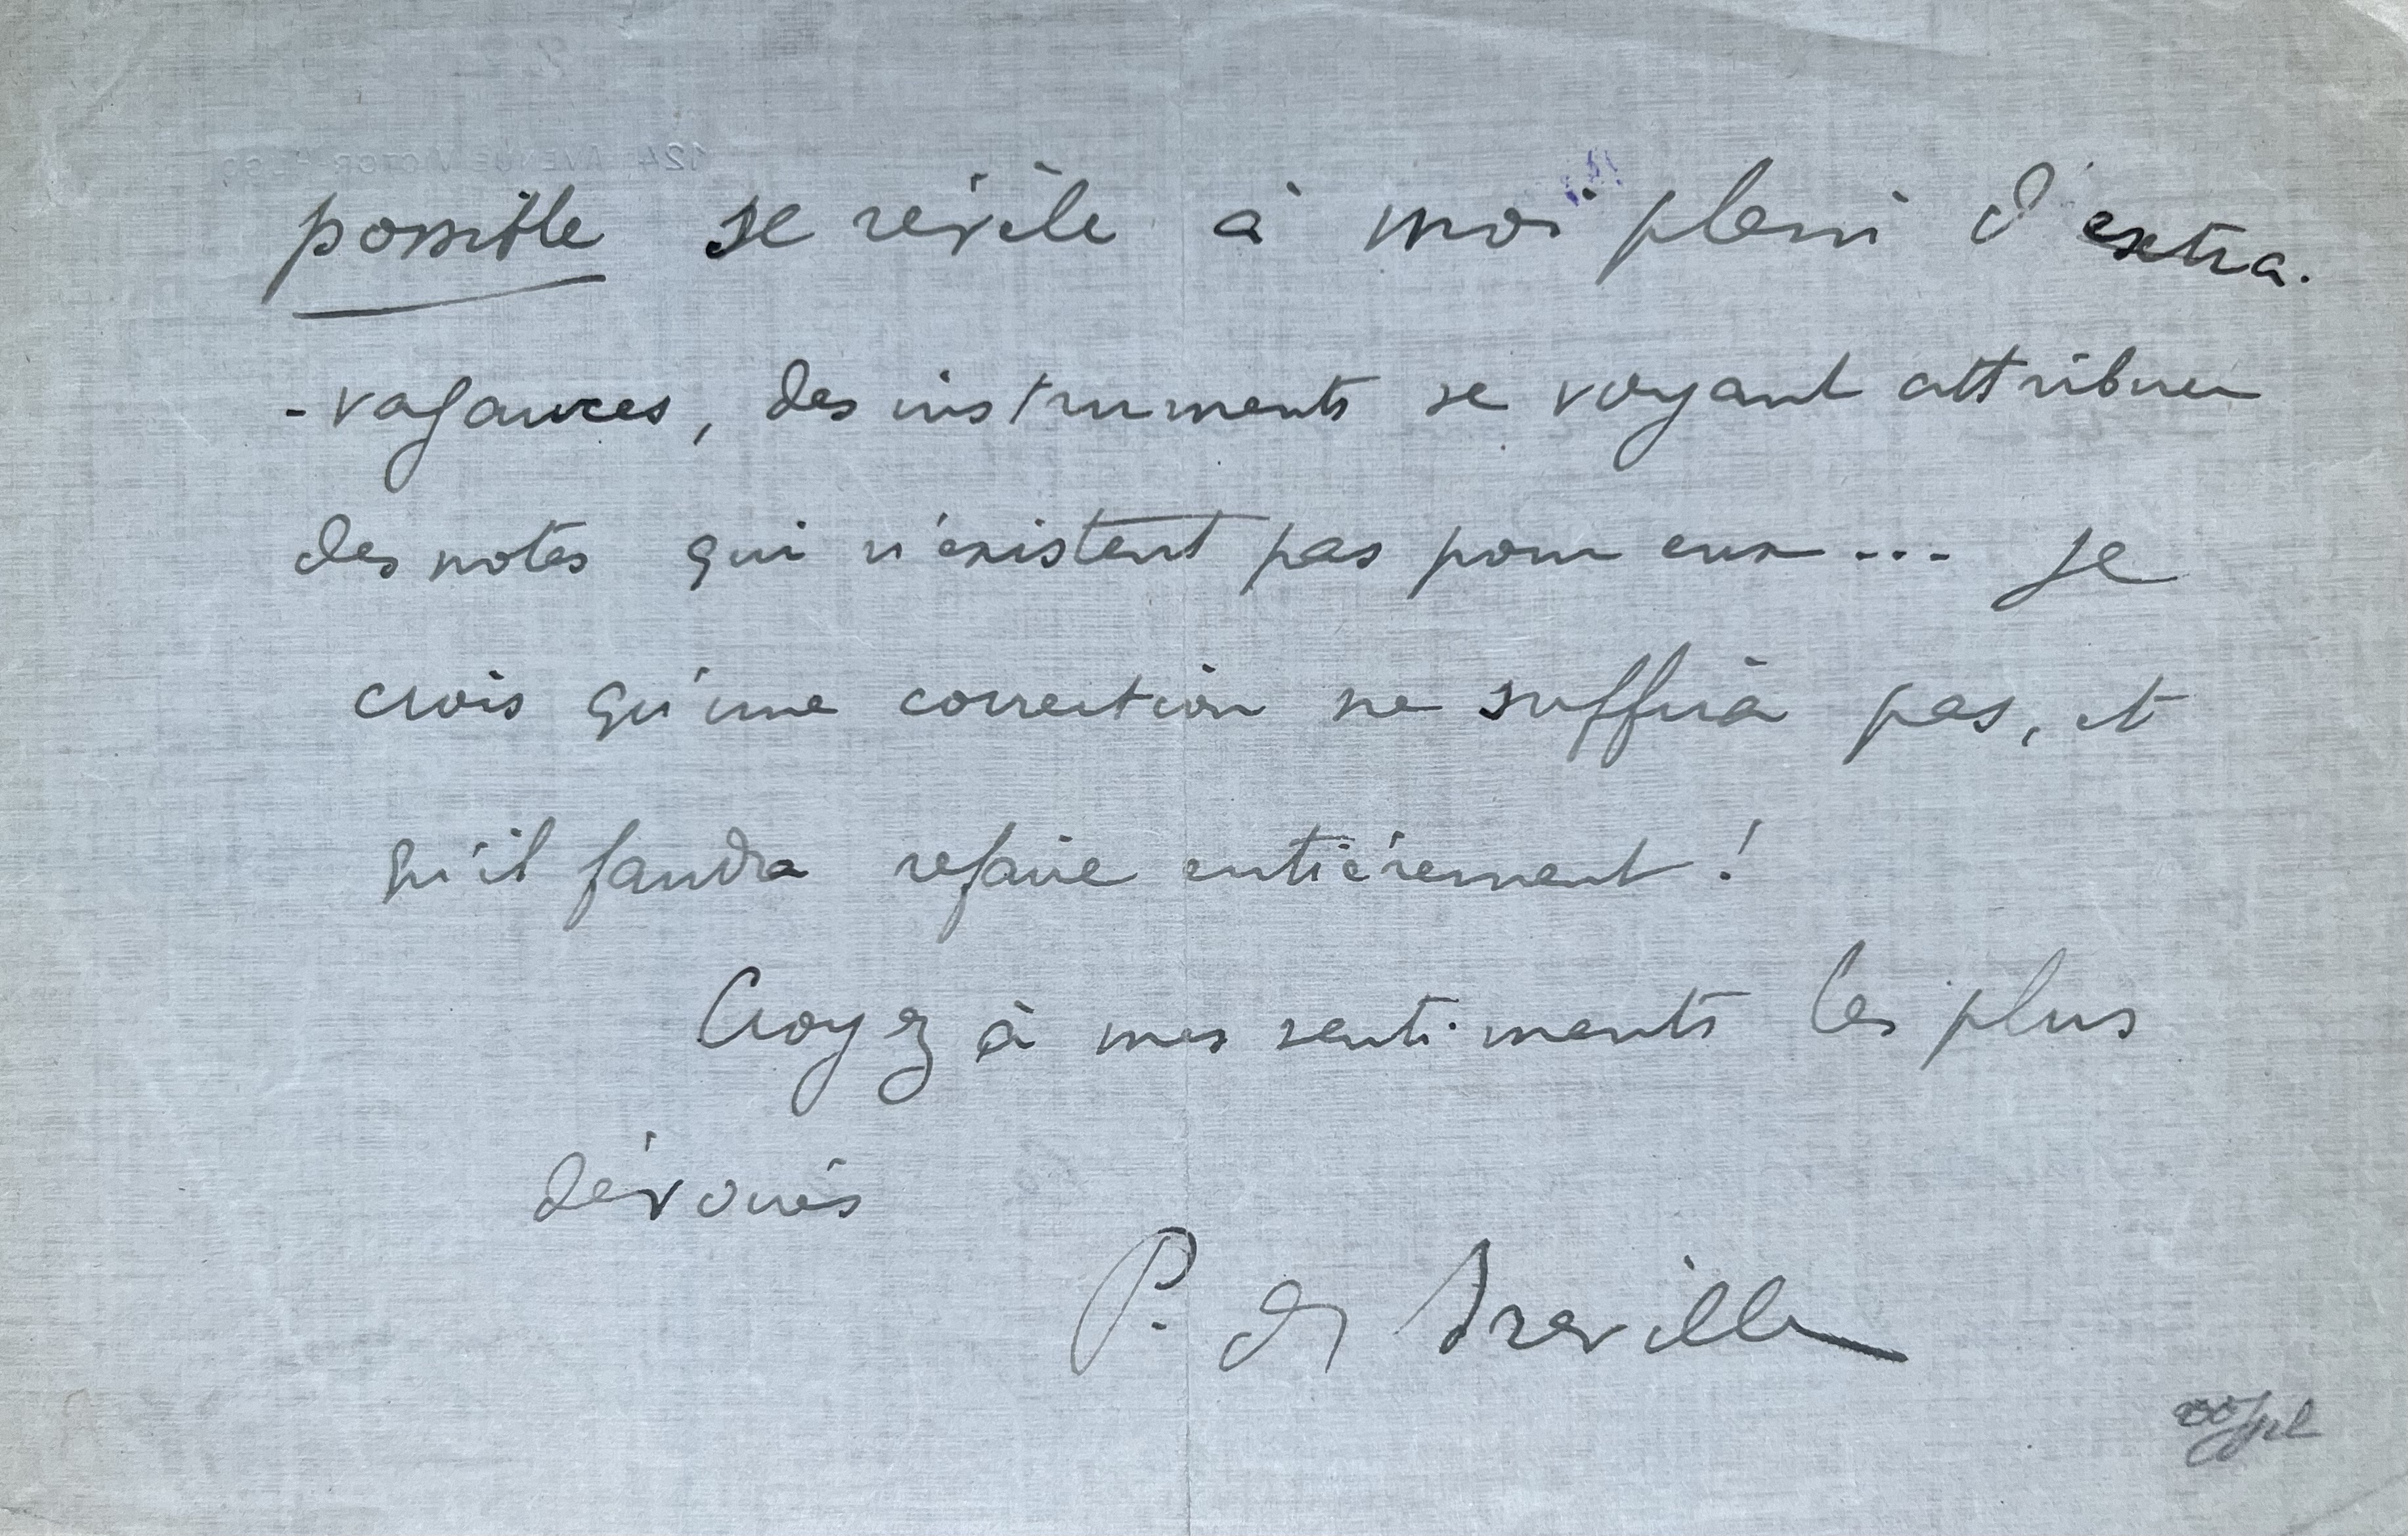 124, AVENUE VICTOR-HUGO
possible se révèle à moi plein d'extra-
-vagances, des instruments se voyant attribuer
des notes qui n'existent pas pour eux... Je
crois qu'une correction ne suffira pas, et
qu'il faudra refaire entièrement!
Croyez à mes sentiments les plus
dévoués
P. de Breville